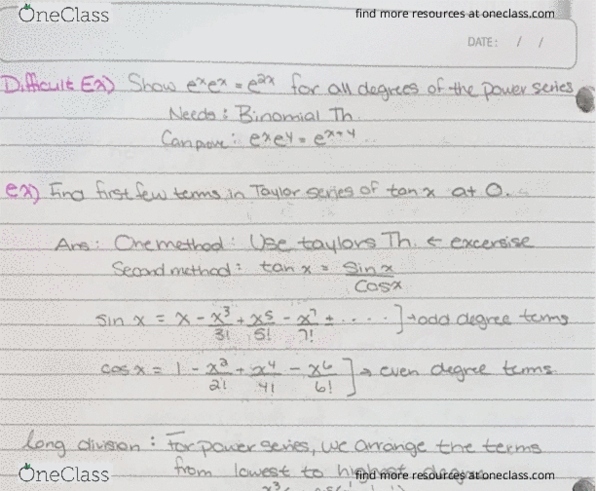 OneClass
find more resources at oneclass.com
DATE: / /
Difficult Ex) Show eˣeˣ = e²ˣ for all degrees of the power series
Needs: Binomial Th.
Can prove: eˣeʸ = eˣ⁺ʸ
ex) Find first few terms in Taylor series of tan x at 0.
Ans: One method: Use taylors Th. ← excersise
Second method: tan x = sin x / cos x
sin x = x - x³/3! + x⁵/5! - x⁷/7! + ....] → odd degree terms
cos x = 1 - x²/2! + x⁴/4! - x⁶/6! ] → even degree terms
long division: For power series, we arrange the terms
from lowest to highest degree
OneClass
find more resources at oneclass.com